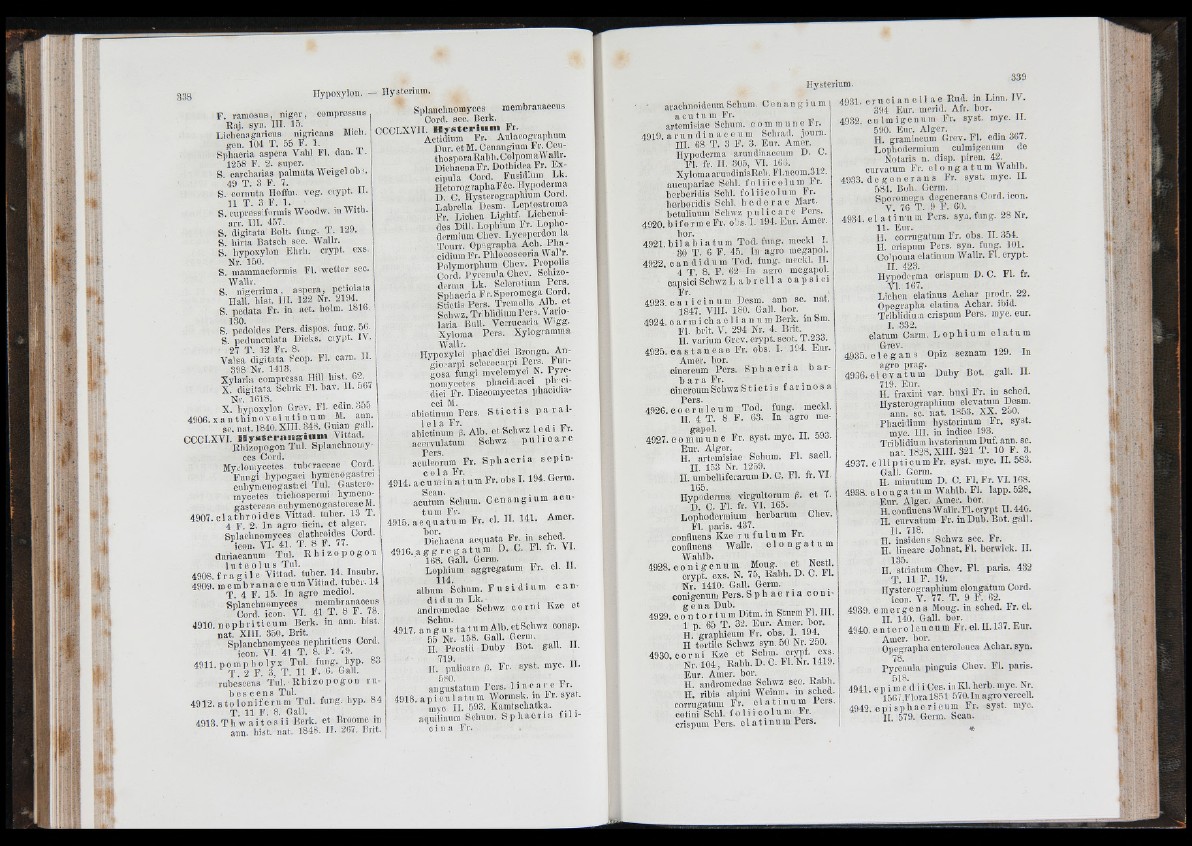 338 Hypoxylon. — Hysterium.
F. ramosus, niger, compressus
Raj. syn. III. 15.
Lichenagaricus nigricans Mich.
gen. 104 T. 55 F. 1.
Sphaeria aspera Vahl Fl. dan. T.
1258 F. 2. super.
S. carcharias palmata Weigel obs.
49 T. 3 F. 7.
S. cornuta Hoffm. veg. crypt. II.
11 T. 3 F. 1.
S. cupressiformis Woodw. in With.
arr. III. 457.
S. digitata Bolt. fung. T. 129.
S. hirta Batsch sec. Wallr.
S. hypoxylon Ehrh. crypt. exs.
Nr. 150.
S. mammaeformis Fl. wetter sec.
Wallr.
S. nigerrima, aspera, petiolata
Hall. hist. III. 122 Nr. 2194.
S. pedata Fr. in act. holm. 1816.
130.
S. pedoides Pers. dispos. fung. 56.
S. pedunculata Dicks. crypt. IV.
27 T. 12 Fr. 8.
Valsa digitata Scop. Fl. carn. II.
398 Nr. 1418.
Xylaria compressa Hill hist. 62.
X. digitata Schrk Fl. bav. II. 567
Nr. 1618.
X. hypoxylon Grev. Fl. edin. 355
4906. xanthinovelutinum M. ann.
sc. nat. 1840. XIII. 348. Guian gall.
CCCLXVI. Hysterangium Vittad.
Rhizopogon Tul. Splanchnomy-
ces Cord.
Myelomycetes tuberaceae Cord.
Fungi hypogaei hymenogastrei
euhymenogastrei Tul. Gastero-
mycetes trichospermi hymeno-
gastereae euhymenogastereae M.
4907. clathroides Vittad. tuber. 13 T.
4 F. 2. In agro ticin. et alger.
Splachnomyces clathroides Cord.
icon. VI. 41. T. 8 F. 77.
duriaeanum Tul. Rhizopogon
luteolus Tul.
4908. fragile Vittad. tuber. 14. Insubr.
4909. membranaceum Vittad. tuber. 14
T. 4 F. 15. In agro mediol.
Splanchnomyces membranaceus
Cord. icon. VI. 41 T. 8 F. 78.
4910. nephriticum Berk. in ann. hist.
nat. XIII. 350. Brit.
Splanchnomyces nephriticus Cord.
icon. VI. 41 T. 8. F. 79.
4911. pompholyx Tul. fung. hyp. 83
T. 2 F. 5, T. 11 F. 6. Gall.
rubescens Tul. Rhizopogon ru-
bescens Tul.
4912. stoloniferum Tul. fung. hyp. 84
T. 11 F. 8. Gall.
4913. Thwaitesii Berk. et Broome in
ann. hist. nat. 1848. II. 267. Brit.
Splanchnomyces membranaceus
Cord. sec. Berk.
CCCLXVII. Hysterium Fr.
Actidium Fr. Aulacographum
Dur. et M. Cenangium Fr. Ceu-
thospora Rabh. Colpoma Wallr.
Dichaena Fr. Dothidea Fr. Ex-
cipula Cord. Fusidium Lk.
Heterographa Fée. Hypoderma
D. C. Hysterographium Cord.
Labrella Desm. Leptostroma
Fr. Lichen Lightf. Lichenoi-
des Dill. Lophium Fr. Lopho-
dermium Chev. Lycoperdon la
Tourr. Opegrapha Ach. Pha-
cidium Fr. Phloeoscoria Wallr.
Polymorphum Chev. Propolis
Cord. Pyrenula Chev. Schizo-
derma Lk. Sclerotium Pers.
Sphaeria Fr. Sporomega Cord.
Stictis Pers. Tremella Alb. et
Schwz. Triblidium Pers. Vario-
laria Bull. Verrucaria Wigg.
Xyloma Pers. Xylogramma
Wallr.
Hypoxylei phacidiei Brongn. An-
giocarpi sclerocarpi Pers. Fun-
gosa fungi myelomyci N. Pyre-
nomycetes phacidiacei phaci-
diei Fr. Discomycetes phacidia-
cei M.
abietinum Pers. Stictis paral-
lela Fr.
abietinum β. Alb. et Schwz ledi Fr.
acervulatum Schwz pulicare
Pers.
aculeorum Fr. Sphaeria sepin-
cola Fr.
4914. acuminatum Fr. obs I. 194. Germ.
Scan.
acutum Schum. Cenangium acu-
tum Fr.
4915. aequatum Fr. el. II. 141. Amer.
bor.
Dichaena aequata Fr. in sched.
4916. aggregatum D. C. Fl. fr. VI.
168. Gall. Germ.
Lophium aggregatum Fr. el. II.
114.
album Schum. Fusidium can-
didum Lk.
andromedae Schwz corni Kze et
Schm.
4917. angustatum Alb. et Schwz consp.
55 Nr. 158. Gall. Germ.
H. Prostii Duby Bot. gall. II.
719.
H. pulicare β. Fr. syst. myc. II.
580.
angustatum Pers. lineare Fr.
4918. apiculatum Wormsk. in Fr. syst.
myc II. 593. Kamtschatka.
aquilinum Schum. Sphaeria fili-
cina Fr.
Hysterium. 339
arachnoideum Schum. Cenangium
acutum Fr.
artemisiae Schum. commune Fr.
4919. arundinaceum Schrad. journ.
III. 68 T. 3 F. 3. Eur. Amer.
Hypoderma arundinaceum D. C.
Fl. fr. II. 305, VI. 165.
Xyloma arundinis Reb. Fl. neom. 312.
aucupariae Schl. foliicolum Fr.
berberidis Schl. foliicolum Fr.
berberidis Schl. hederae Mart.
betulinum Schwz pulicare Pers.
4920. biforme Fr. obs. I. 194. Eur. Amer.
bor.
4921. bilabiatum Tod. fung. meckl I.
30 T. 6 F. 45. In agro megapol.
4922. candidum Tod. fung. meckl. II.
4 T. 8. F. 62 In agro megapol.
capsici Schwz Labrella capsici
Fr.
4923. caricinum Desm. ann sc. nat.
1847. VIII. 180. Gall. bor.
4924. carmichaelianum Berk. in Sm.
Fl. brit. V. 294 Nr. 4. Brit.
H. varium Grev. crypt. scot. T. 233.
4925. castaneae Fr. obs. I. 194. Eur.
Amer. bor.
cinereum Pers. Sphaeria bar-
bara Fr.
cinereum Schwz Stictis farinosa
Pers.
4926. coeruleum Tod. fung. meckl.
II. 4 T. 8 F. 63. In agro me-
gapol.
4927. commune Fr. syst. myc. II. 593.
Eur. Alger.
H. artemisiae Schum. Fl. saell.
II. 153 Nr. 1259.
H. umbelliferarum D. C. Fl. fr. VI.
165.
Hypoderma virgultorum β. et 7.
D. C. Fl. fr. VI. 165.
Lophodermium herbarum Chev.
Fl. paris. 437.
confluens Kze rufulum Fr.
confluens Wallr. elongatum
Wahlb.
4928. conigenum Moug. et Nestl.
crypt. exs. N. 75, Rabh. D. C. Fl.
Nr. 1410. Gall. Germ.
conigenum Pers. Sphaeria coni-
gena Dub.
4929. contortum Ditm. in Sturm Fl. III.
1 p. 65 T. 32. Eur. Amer. bor.
H. graphicum Fr. obs. I. 194.
H tortile Schwz syn. 50 Nr. 250.
4930. corni Kze et Schm. crypt. exs.
Nr. 104, Rabh. D. C. Fl. Nr. 1419.
Eur. Amer. bor.
H. andromedae Schwz sec. Rabh.
H. ribis alpini Weinm. in sched.
corrugatum Fr. elatinum Pers.
cotini Schl. foliicolum Fr.
crispum Pers. elatinum Pers.
4931. crucianellae Rud. in Linn. IV.
394 Eur. merid. Afr. bor.
4932. culmigenum Fr. syst. myc. II.
590. Eur. Alger.
H. gramineum Grev. Fl. edin 367.
Lophodermium culmigenum de
Notaris n. disp. piren. 42.
curvatum Fr. elongatum Wahlb.
4933. degenerans Fr. syst. myc. II.
584. Boh. Germ.
Sporomega degenerans Cord. icon.
V. 76 T. 9 F. 60.
4934. elatinum Pers. syn. fung. 28 Nr.
11. Eur.
H. corrugatum Fr. obs. II. 354.
H. crispum Pers. syn. fung. 101.
Colpoma elatinum Wallr. Fl. crypt.
II. 423.
Hypoderma crispum D. C. Fl. fr.
VI. 167.
Lichen elatinus Achar prodr. 22.
Opegrapha elatina Achar. ibid.
Triblidium crispum Pers. myc. eur.
I. 332.
elatum Carm. Lophium elatum
Grev.
4935. elegans Opiz seznam 129. In
agro prag.
4936. elevatum Duby Bot. gall. II.
719. Eur.
H. fraxini var. buxi Fr. in sched.
Hysterographium elevatum Desm.
ann. sc. nat. 1853. XX. 230.
Phacidium hysterinum Fr. syst.
myc. III. in indice 193.
Triblidium hysterinum Duf. ann. sc.
nat. 1828. XIII. 321 T. 10 F. 3.
4937. ellipticum Fr. syst. myc. II. 583.
Gall. Germ.
H. minutum D. C. Fl. Fr. VI. 168.
4938. elongatum Wahlb. Fl. lapp. 528.
Eur. Alger. Amer. bor.
H. confluens Wallr. Fl. crypt II. 446.
H. curvatum Fr. in Dub. Bot. gall.
II. 718.
H. insidens Schwz sec. Fr.
H. lineare Johnst. Fl. berwick. II.
135.
H. striatum Chev. Fl. paris. 432
T. 11 F. 19.
Hysterographium elongatum Cord.
icon. V. 77. T. 9 F. 62.
4939. emergens Moug. in sched. Fr. el.
II. 140. Gall. bor.
4940. enteroleucum Fr. el. II. 137. Eur.
Amer. bor.
Opegrapha enteroleuca Achar. syn.
78.
Pyrenula pinguis Chev. Fl. paris.
518.
4941. epimedii Ces. in Kl. herb. myc. Nr.
1567. Flora 1851 570. In agro vercell.
4942. episphaericum Fr. syst. myc.
II. 579. Germ. Scan.